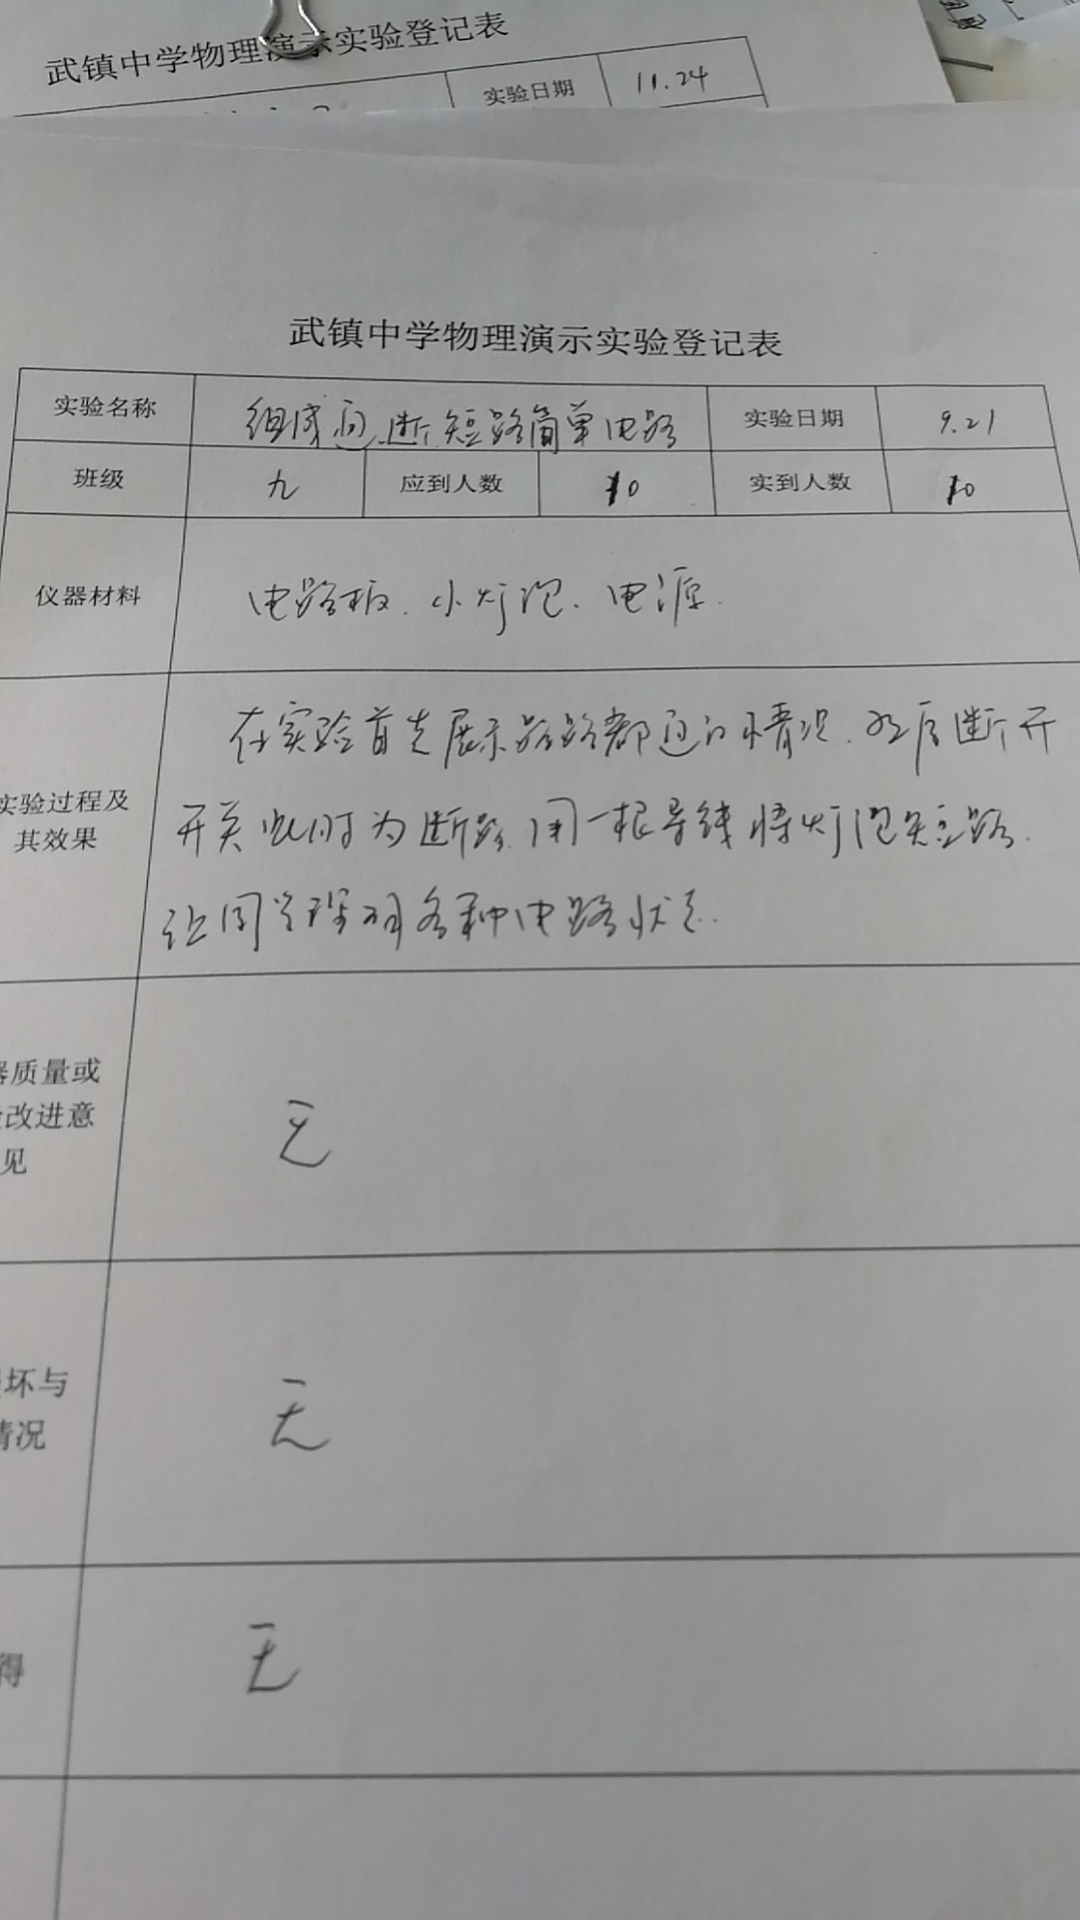 武镇中学物理演示实验登记表
实验日期 11.24
武镇中学物理演示实验登记表
实验名称 组成通.断.短路简单电路 实验日期 9.21
班级 九 应到人数 10 实到人数 10
仪器材料 电路板.小灯泡、电源.
在实验首先展示 路都通的情况.然后断开
实验过程及
其效果
开关此时为断路.用一根导线将灯泡短路.
让同学理解各种电路状态.
器质量或
改进意
见
无
坏与
情况
无
得
无